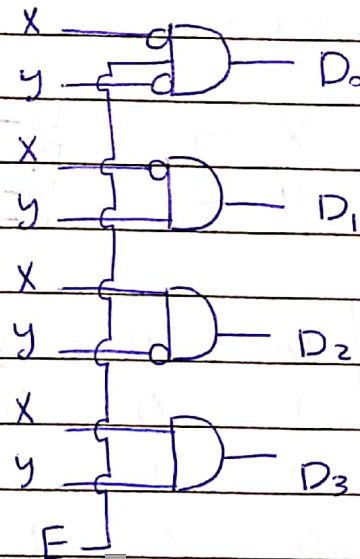 X
y D₀
X
y D₁
X
y D₂
X
y D₃
E